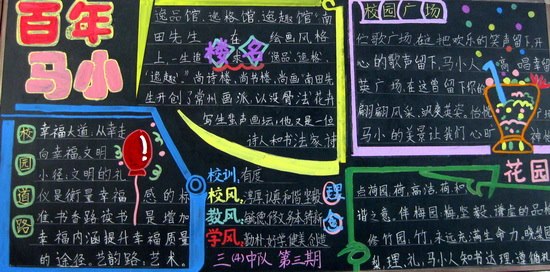 百年
马小
逸品馆、逸格馆、逸趣馆"南
田先生 在 绘画风格
上一生追 求 "逸品、逸格、
逸趣",尚诗楼、尚书楼、尚画南田先
生开创了常州画派,以没骨法花卉
写生蜚声画坛,他又是一位
诗人和书法家诗
楼名
校园广场
仁歌广场,在这把欢乐的笑声留下,开
心的歌声留下,马小人
英广场,在这曾留下你的
翩翩风采,飒爽英姿,
马小的美景让我们心旷
校园道路
幸福大道:从幸走
向幸福,文明
小径:文明的礼
仪是衡量幸福 感的标
准,书香路读书 是增加
幸福内涵提升幸福质量
的途径。艺韵路:艺术。
校训:有度
校风:淳厚认真和谐坚毅
教风:敏德修文务本特新
学风:勤朴好学健美创造
三(4)中队 第三期
理
花园
点荷园,荷,高洁,荷和
谐之意,伴梅园:梅,坚毅、谦虚的品格
修竹园,竹,永远充满生命力,
礼,马小人知书达理,遵循